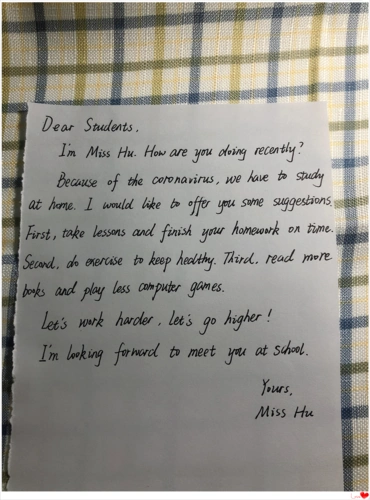 Dear Students,
I'm Miss Hu. How are you doing recently?
Because of the coronavirus, we have to study
at home. I would like to offer you some suggestions.
First, take lessons and finish your homework on time.
Second, do exercise to keep healthy. Third, read more
books and play less computer games.
Let's work harder, let's go higher!
I'm looking forward to meet you at school.
Yours,
Miss Hu